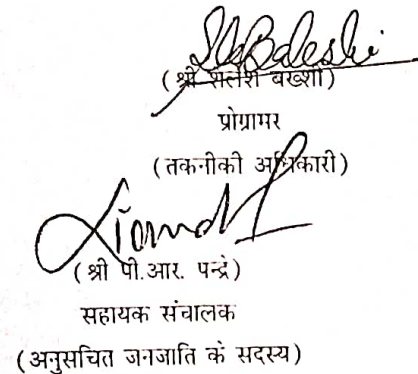 (श्री शैलेश बख्शी)
प्रोग्रामर
(तकनीकी अधिकारी)
(श्री पी.आर. पन्द्रे)
सहायक संचालक
(अनुसचित जनजाति के सदस्य)